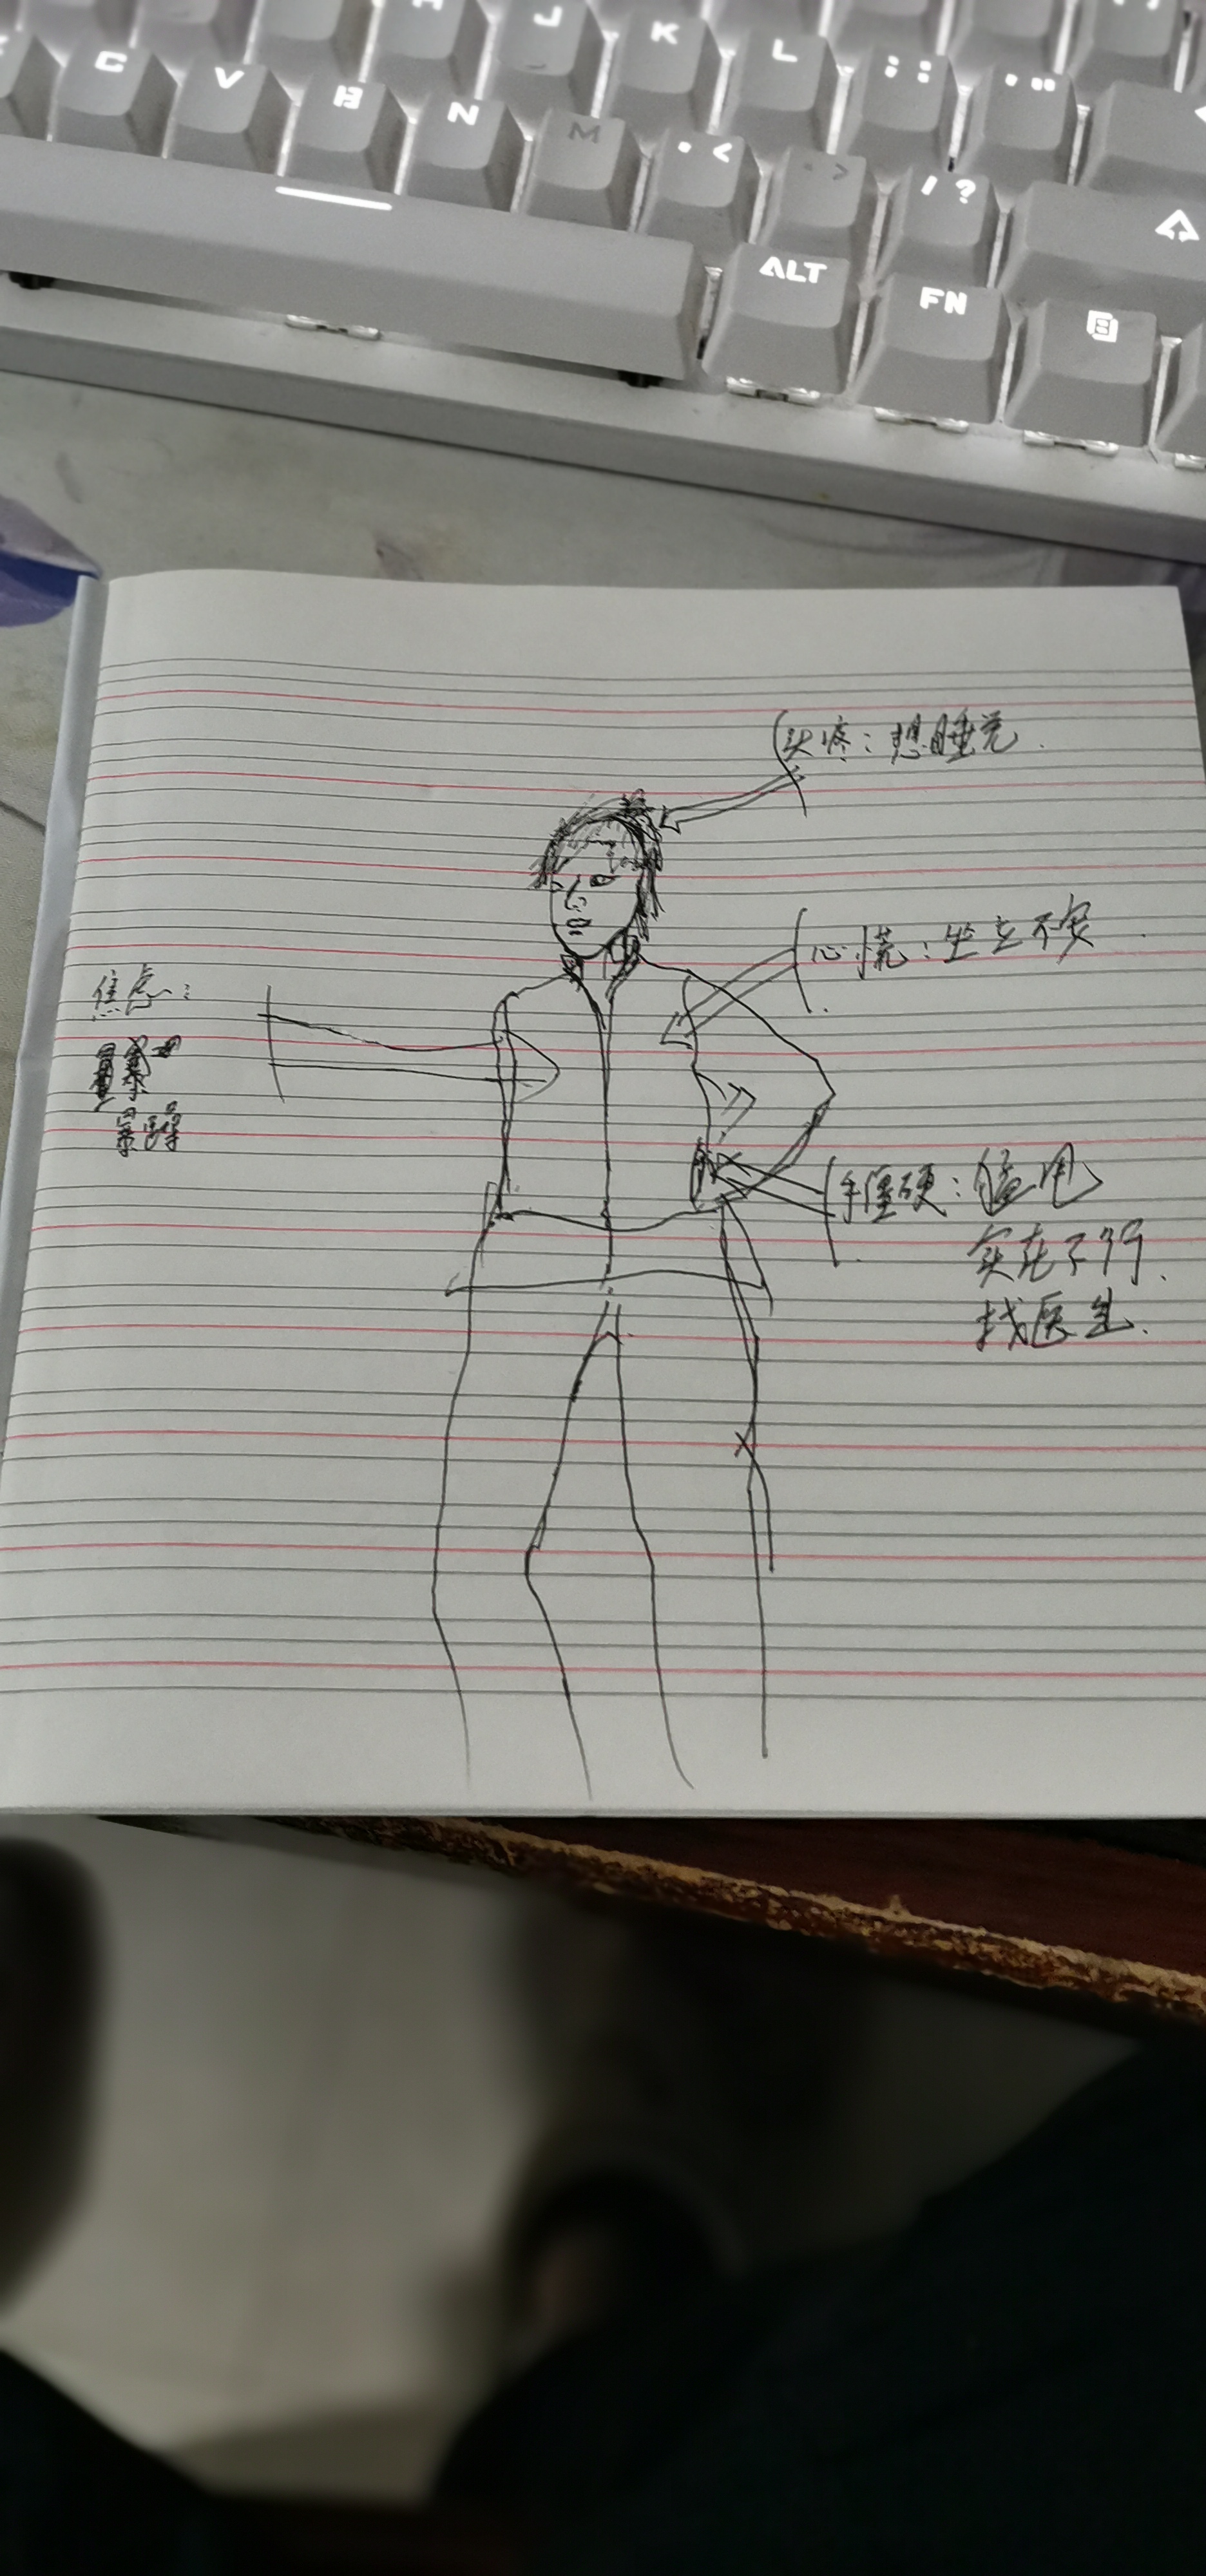 H J K L : ;
C V B N M , < . > / ?
ALT FN
头疼：想睡觉.
心慌：坐立不安.
焦虑：
暴躁
手僵硬：猛甩
实在不行.
找医生.